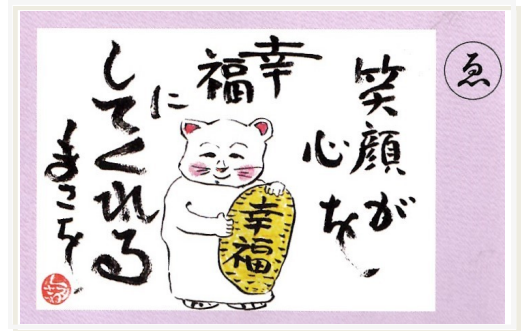 ゑ
笑顔が
心を
幸福
に
してくれる
幸福